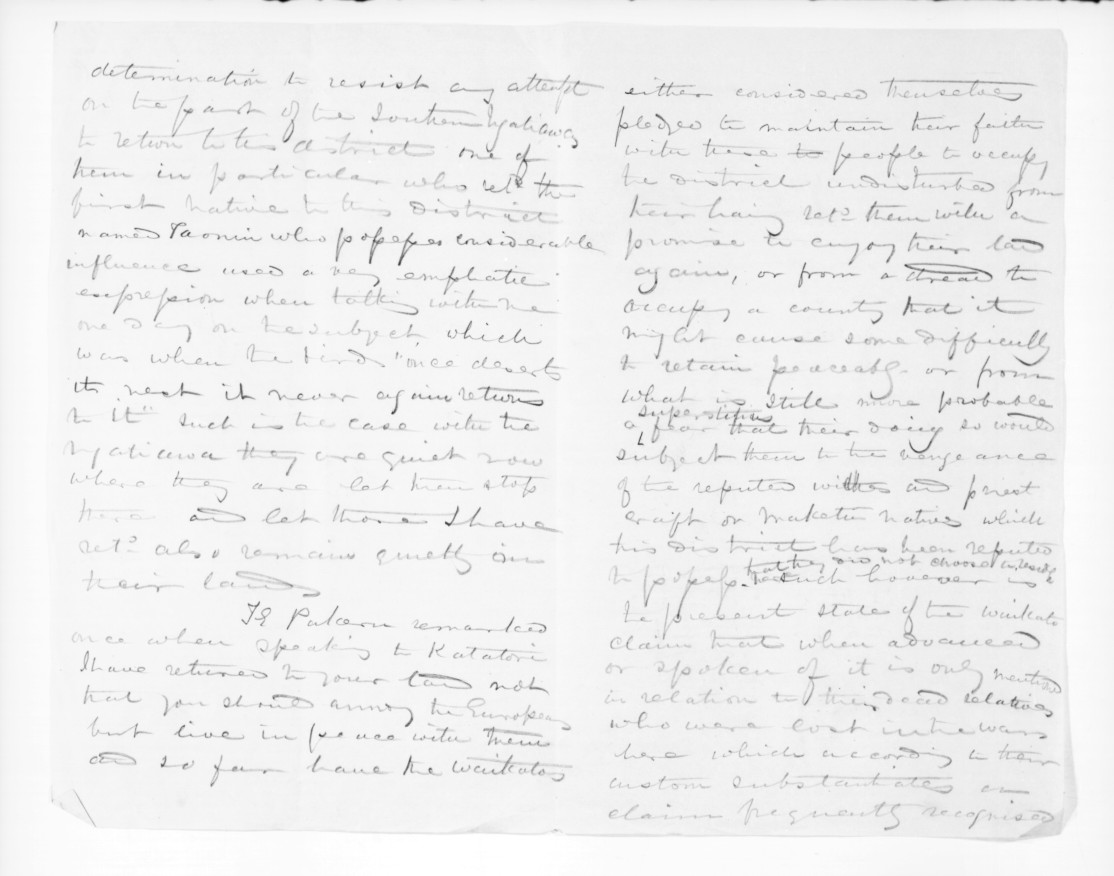 determination to resist any attempt
on the part of the Southern Ngatiawas
to return to this district one of
them in particular who retd the
first native to this district
named Taonui who possesses considerable
influence used a very emphatic
expression when talking with me
one day on the subject which
was when the bird "once deserts
its nest it never again returns
to it" such is the case with the
Ngatiawa they are quiet now
where they are let them stop
there and let those I have
retd also remain quietly on
their lands
Te Pakaru remarked
once when speaking to Katatori
I have returned to your land not
that you should annoy the Europeans
but live in peace with them
and so far have the Waikatos
either considered themselves
pledged to maintain their faith
with these to people to occupy
the district undisturbed from
their having retd them with a
promise to enjoy their land
again, or from a dread to
occupy a county that it
might cause some difficulty
to retain peaceably or from
what is still more probable
superstitious
a fear that their doing so would
subject them to the vengeance
of the reputed witches and priest
craft or Maketu natives which
this district has been reputed
that they did not choose to reside
to possess. such however is
the present state of the Waikato
claim that when advanced
or spoken of it is only mentioned
in relation to their dead relatives
who were lost in the wars
here which according to their
custom substantiates a
claim frequently recognised